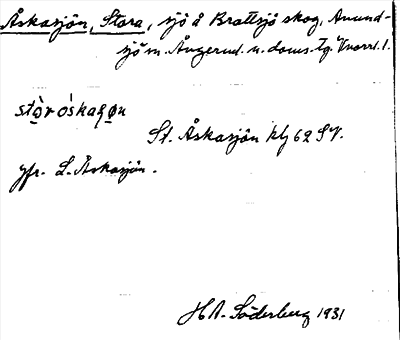 Åskasjön, Stora, sjö å Brattsjö skog, Anund-
sjö m. Ångerml. n. doms. tg. Vnorrl. l.
stò̱r òskaʃǫn
St. Åskasjön klj 62 SV.
jfr. L. Åskasjön.
H A. Söderberg 1931